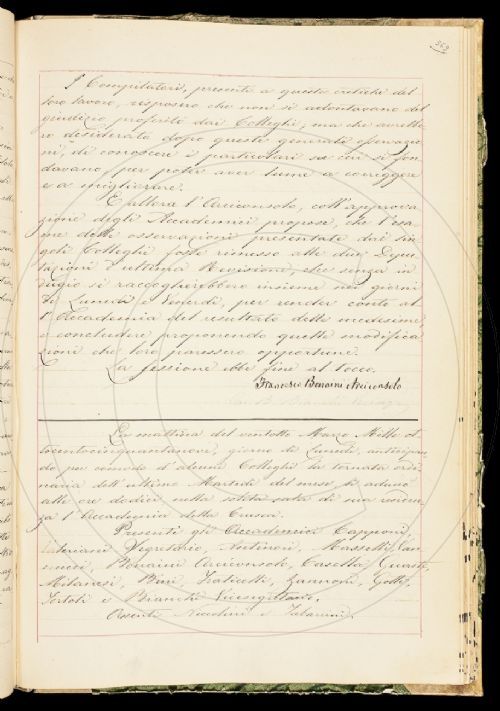 369
I Compilatori, presenti a queste critiche del
loro lavoro, risposero che non si adontavano del
giudizio proferito dai Colleghi; ma che avrebbe-
ro desiderato dopo queste generali osservazio
ni, di conoscere i particolari su cui si fon
davano, per poter aver lume a correggere
e a migliorare.
E allora l'Arciconsolo, coll'approva
zione degli Accademici propose, che l'esa
me delle osservazioni presentate dai sin
goli Colleghi fosse rimesso alle due Depu
tazioni d'ultima Revisione, che senza in
dugio si raccoglierebbero insieme nei giorni
di Lunedì e Venerdì, per render conto al
l'Accademia del resultato delle medesime,
e concludere proponendo quelle modifica
zioni che loro paressero opportune.
La sessione ebbe fine al tocco.
Francesco Bonaini Arciconsolo
La mattina del ventotto Marzo Mille ot
tocentocinquantanove, giorno di Lunedì, anticipan
do per comodo d'alcuni Colleghi la tornata ordi
naria dell'ultimo Martedì del mese, si adunò
alle ore dodici nella solita sala di sua residen
za l'Accademia della Crusca.
Presenti gli Accademici Capponi,
Vegresario, Masselli, Van
nucci, Bonaini Arciconsolo, Casella, Guasti,
Milanesi, Bini, Fraticelli, Zannoni, Gotti,
Tortoli e Bianchi Vicesegretario.
Assenti Niccolini e Tabarrini.